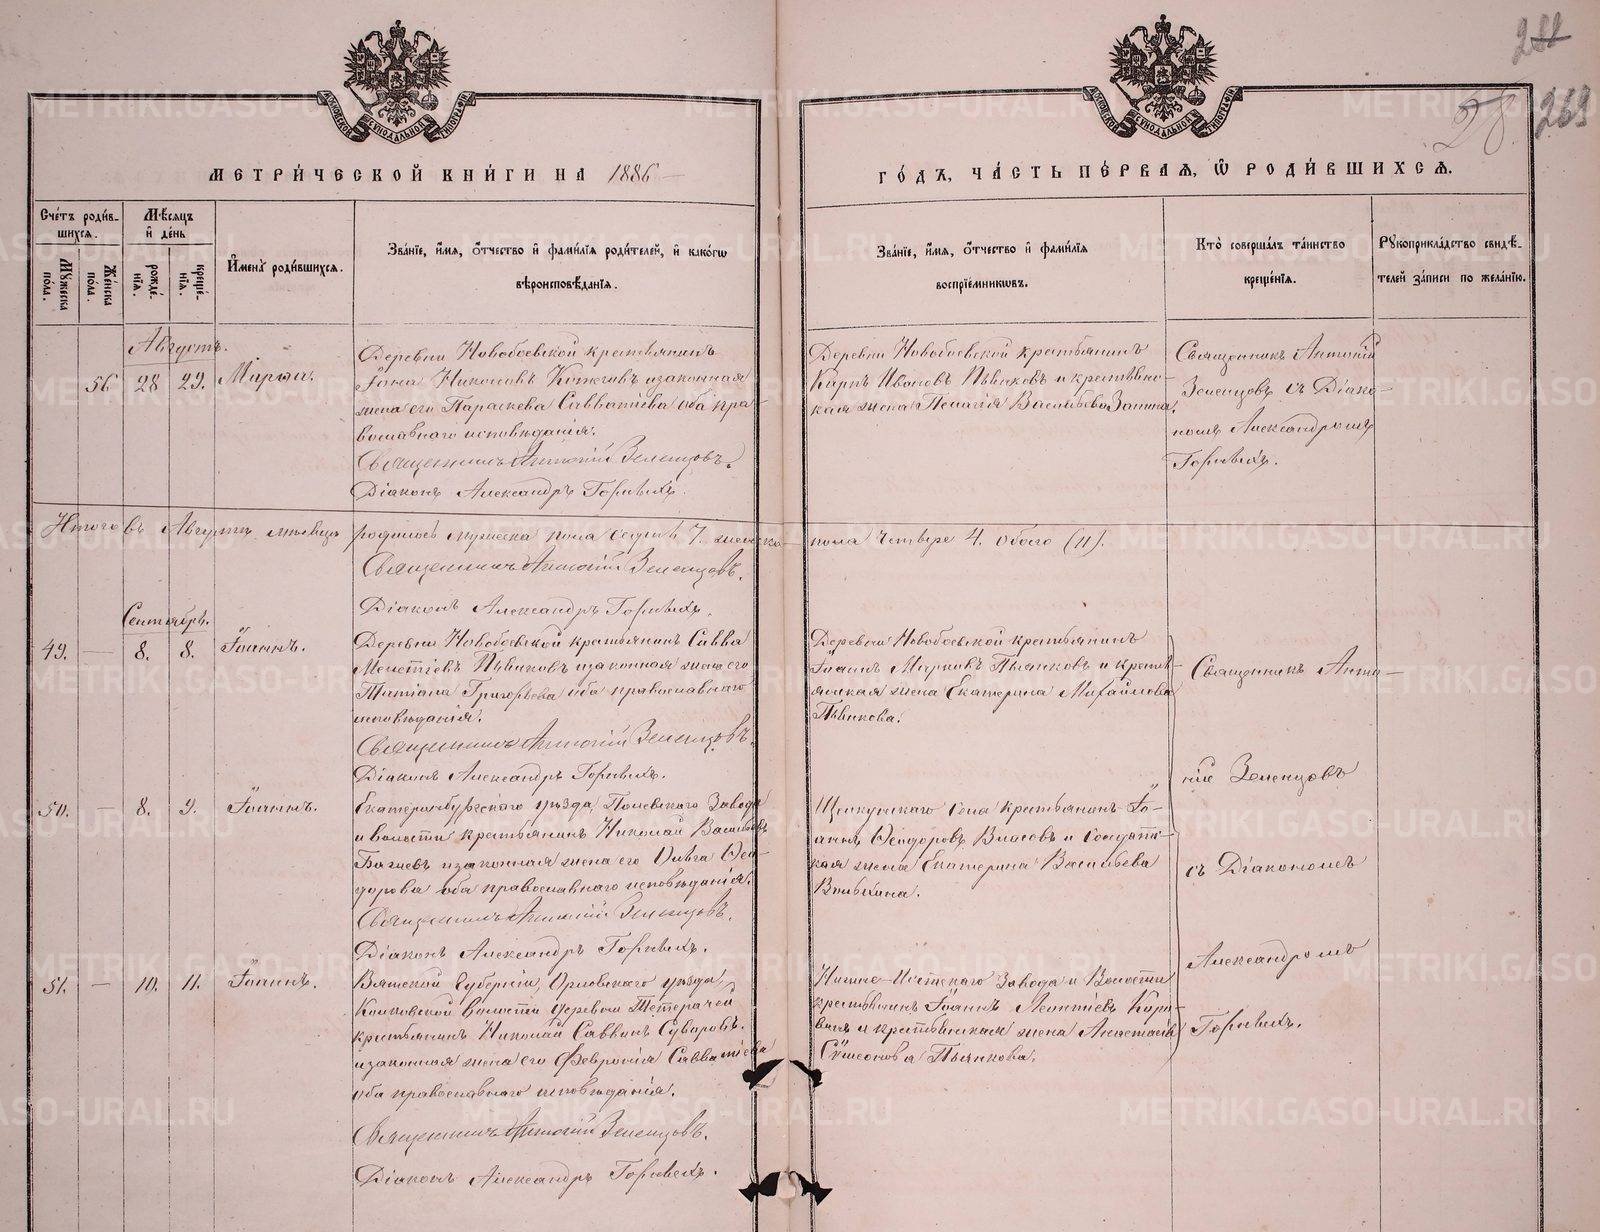 МЕТРИ́ЧЕСКОЙ КНИ́ГИ НА 1886
ГО́ДЪ, ЧА́СТЬ ПЕ́РВАЯ, Ѽ РОДИ́ВШИХСѦ.
269
28.
Сче́тъ роди́в-
шихсѧ.
Мꙋ́жеска по́ла.
Же́нска по́ла.
Мѣ́сѧцъ и де́нь
рожде́-
нїѧ.
креще́-
нїѧ.
И҆мена̀ роди́вшихсѧ.
Зва́нїе, и҆́мѧ, ѻ҆́тчество и҆ фами́лїѧ роди́телей, и҆ како́гѡ
вѣроисповѣ́данїѧ.
Зва́нїе, и҆́мѧ, ѻ҆́тчество и҆ фами́лїѧ
воспрїе́мникѡвъ.
Кто̀ соверша́лъ та́инство
креще́нїѧ.
Рꙋкоприкла́дство свидѣ́-
телей за́писи по жела́нїю.
Августъ.
56 28 29. Марѳа.
Деревни Новобоевской крестьянинъ
Іона Никоновъ и законная
жена его Параскева Савватіева оба пра-
вославнаго исповѣданія.
Священникъ Антоній Зеленцовъ.
Діаконъ Александръ Горныхъ.
Деревни Новобоевской крестьянинъ
Карпъ Ивановъ Пьянковъ и крестьянс-
кая жена Пелагія Васильева
Священникъ Антоній
Зеленцовъ съ Діако-
номъ Александромъ
Горныхъ.
Итого въ Августѣ мѣсяцѣ родилось мужеска пола седмь 7. женска пола четыре 4. обоего (11).
Священникъ Антоній Зеленцовъ.
Діаконъ Александръ Горныхъ.
Сентябрь.
49. — 8. 8. Іоаннъ.
Деревни Новобоевской крестьянинъ Савва
Мелетіевъ Пьянковъ и законная жена его
Татіана Григорьева оба православнаго
исповѣданія.
Священникъ Антоній Зеленцовъ.
Діаконъ Александръ Горныхъ.
Деревни Новобоевской крестьянинъ
Іоаннъ Марковъ Пьянковъ и кресть-
янская жена Екатерина Михайлова
Пьянкова.
Священникъ Анто-
ній Зеленцовъ
съ Діакономъ
Александромъ
Горныхъ.
50. — 8. 9. Іоаннъ.
Екатеринбургскаго уѣзда, Полевскаго Завода
и волости крестьянинъ Николай Васильевъ
Бажевъ и законная жена его Ольга Ѳео-
дорова оба православнаго исповѣданія.
Священникъ Антоній Зеленцовъ.
Діаконъ Александръ Горныхъ.
Щелкунскаго Села крестьянинъ Іо-
аннъ Ѳеодоровъ Власовъ и Солдатс-
кая жена Екатерина Васильева
51. — 10. 11. Іоаннъ.
Вятской Губерніи, Орловскаго уѣзда,
волости деревни
крестьянинъ Николай Саввинъ Суворовъ
и законная жена его Февронія Савватіева
оба православнаго исповѣданія.
Священникъ Антоній Зеленцовъ.
Діаконъ Александръ Горныхъ.
Нижне-Исетскаго Завода и Волости
крестьянинъ Іоаннъ Леонтіевъ
и крестьянская жена Анастасія
Сѷмеонова Пьянкова.
METRIKI.GASO-URAL.RU